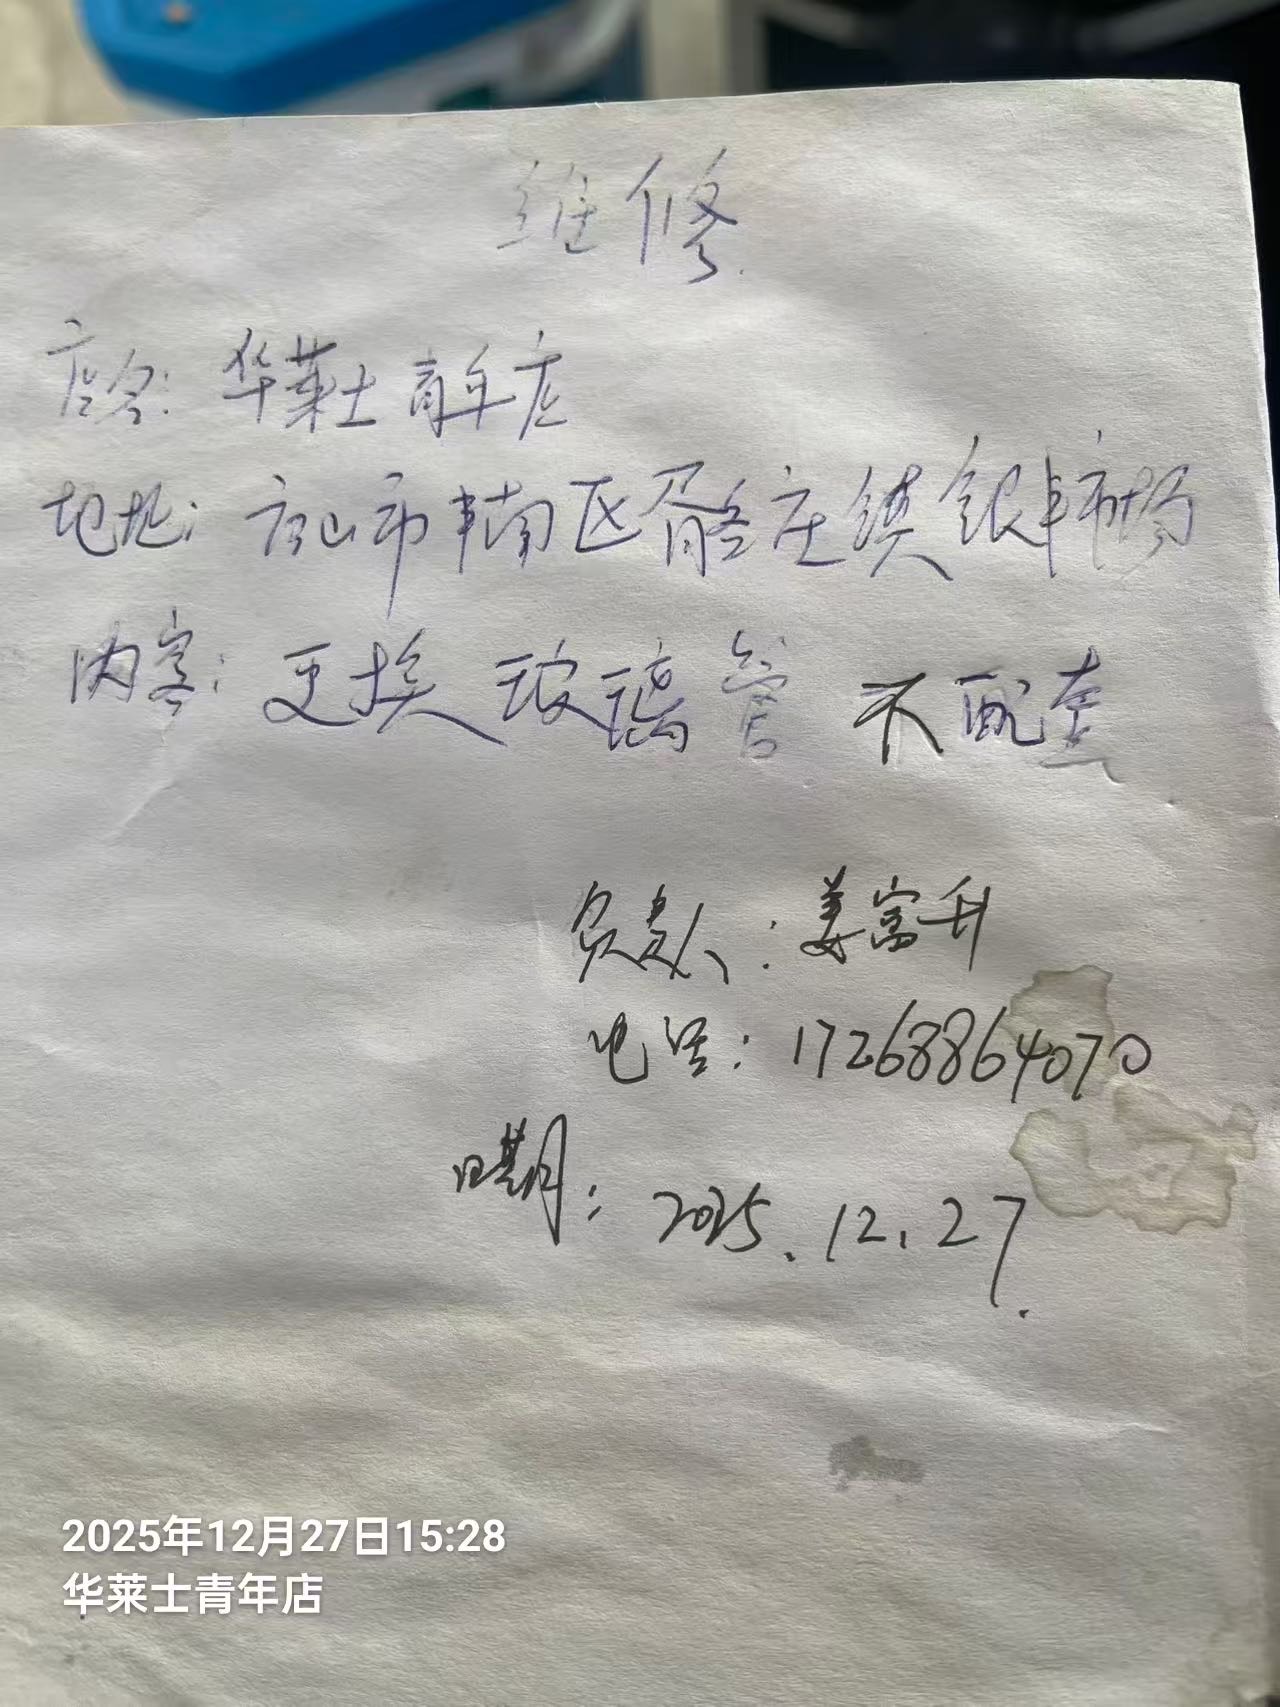 维修
店名：华莱士青年店
地址：唐山市丰南区胥各庄镇银丰市场
内容：更换玻璃管 不配套
负责人：姜富升
电话：17268864070
日期：2025.12.27.
2025年12月27日15:28
华莱士青年店